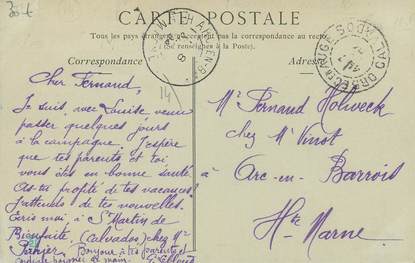 30-6
CARTE POSTALE
Tous les pays étrangers n'acceptent pas la correspondance au recto
(se renseigner à la Poste).
Correspondance
Adresse
14
Cher Fernand,
Je suis avec Louise venu
passer quelques jours
à la campagne. J'espère
que tes parents et toi
vous êtes en bonne santé
As-tu profité de tes vacances?
J'attends de tes nouvelles.
Écris moi à St Martin de
Bienfaite, (Calvados) chez Me
Bonjour à tes parents et
cordiale poignée de main.
Mr Fernand Holweck
chez Mr Vinot
à
Arc-en-Barrois
Hte Marne